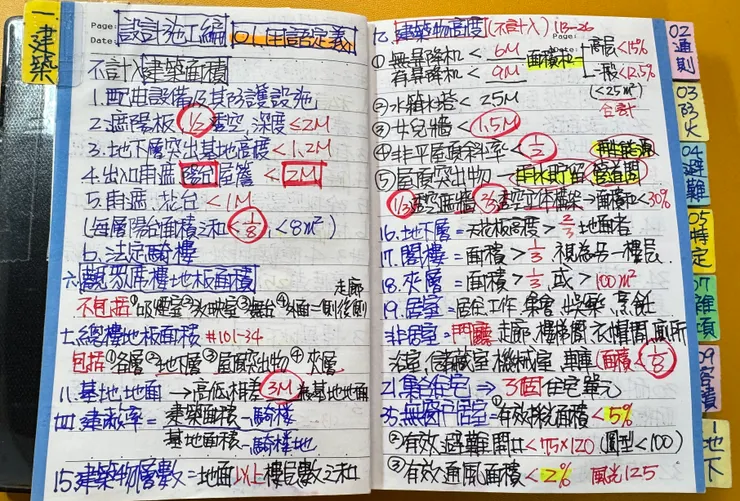 一.建築
Page:
Date:
設計施工編 01.用語定義
不計入建築面積
1.配電設備及其防護設施
2.遮陽板 1/2透空 深度≤2M
3.地下層突出基地高度<1.2M
4.出入口雨遮 陽台屋簷<2M
5.雨遮.花台<1M
(每層陽台面積之和<1/8,<8m²)
6.法定騎樓
六.觀眾席樓地板面積
走廊
不包括①吸煙室②放映室③舞台④外面一側後側
七.總樓地板面積 #101-34
包括①各層②地下層③屋頂突出物④夾層
八.基地地面→高低相差3M
四.建蔽率=建築面積-騎樓
基地面積-騎樓地
15.建築物層數=地面以上樓层數之和
建築物高度(不計入)
Page:
Date:
①無昇降机<6M
有昇降机<9M
面積和
高层<15%
一般<12.5%
(<25m²)
合計
②水箱水塔<25M
③女兒牆<1.5M
④非平屋頂斜率<1/2
⑤屋頂突出物-雨水貯留
1/3透空遮牆 2/3透空立体構架→面積和<30%
16.地下層=天花板高度>2/3地面者
17.閣樓=面積>1/3視為另一樓层.
18.夾層=面積>1/3或>100m²
19.居室=居住工作.集會.娛樂.烹飪
非居室=門廳.走廊.樓梯間.衣帽間.廁所
浴室.儲藏室.機械室.車庫(面積<1/8)
21.集合住宅⇒3個住宅單元
35.無窗戶居室=①有效採光面積<5%
②有效避難開口<75×120(圓型<100)
③有效通風面積<2% 風光125
02 通則
03 防火
04 避難
05 特定
07 雜項
09 容積
地下